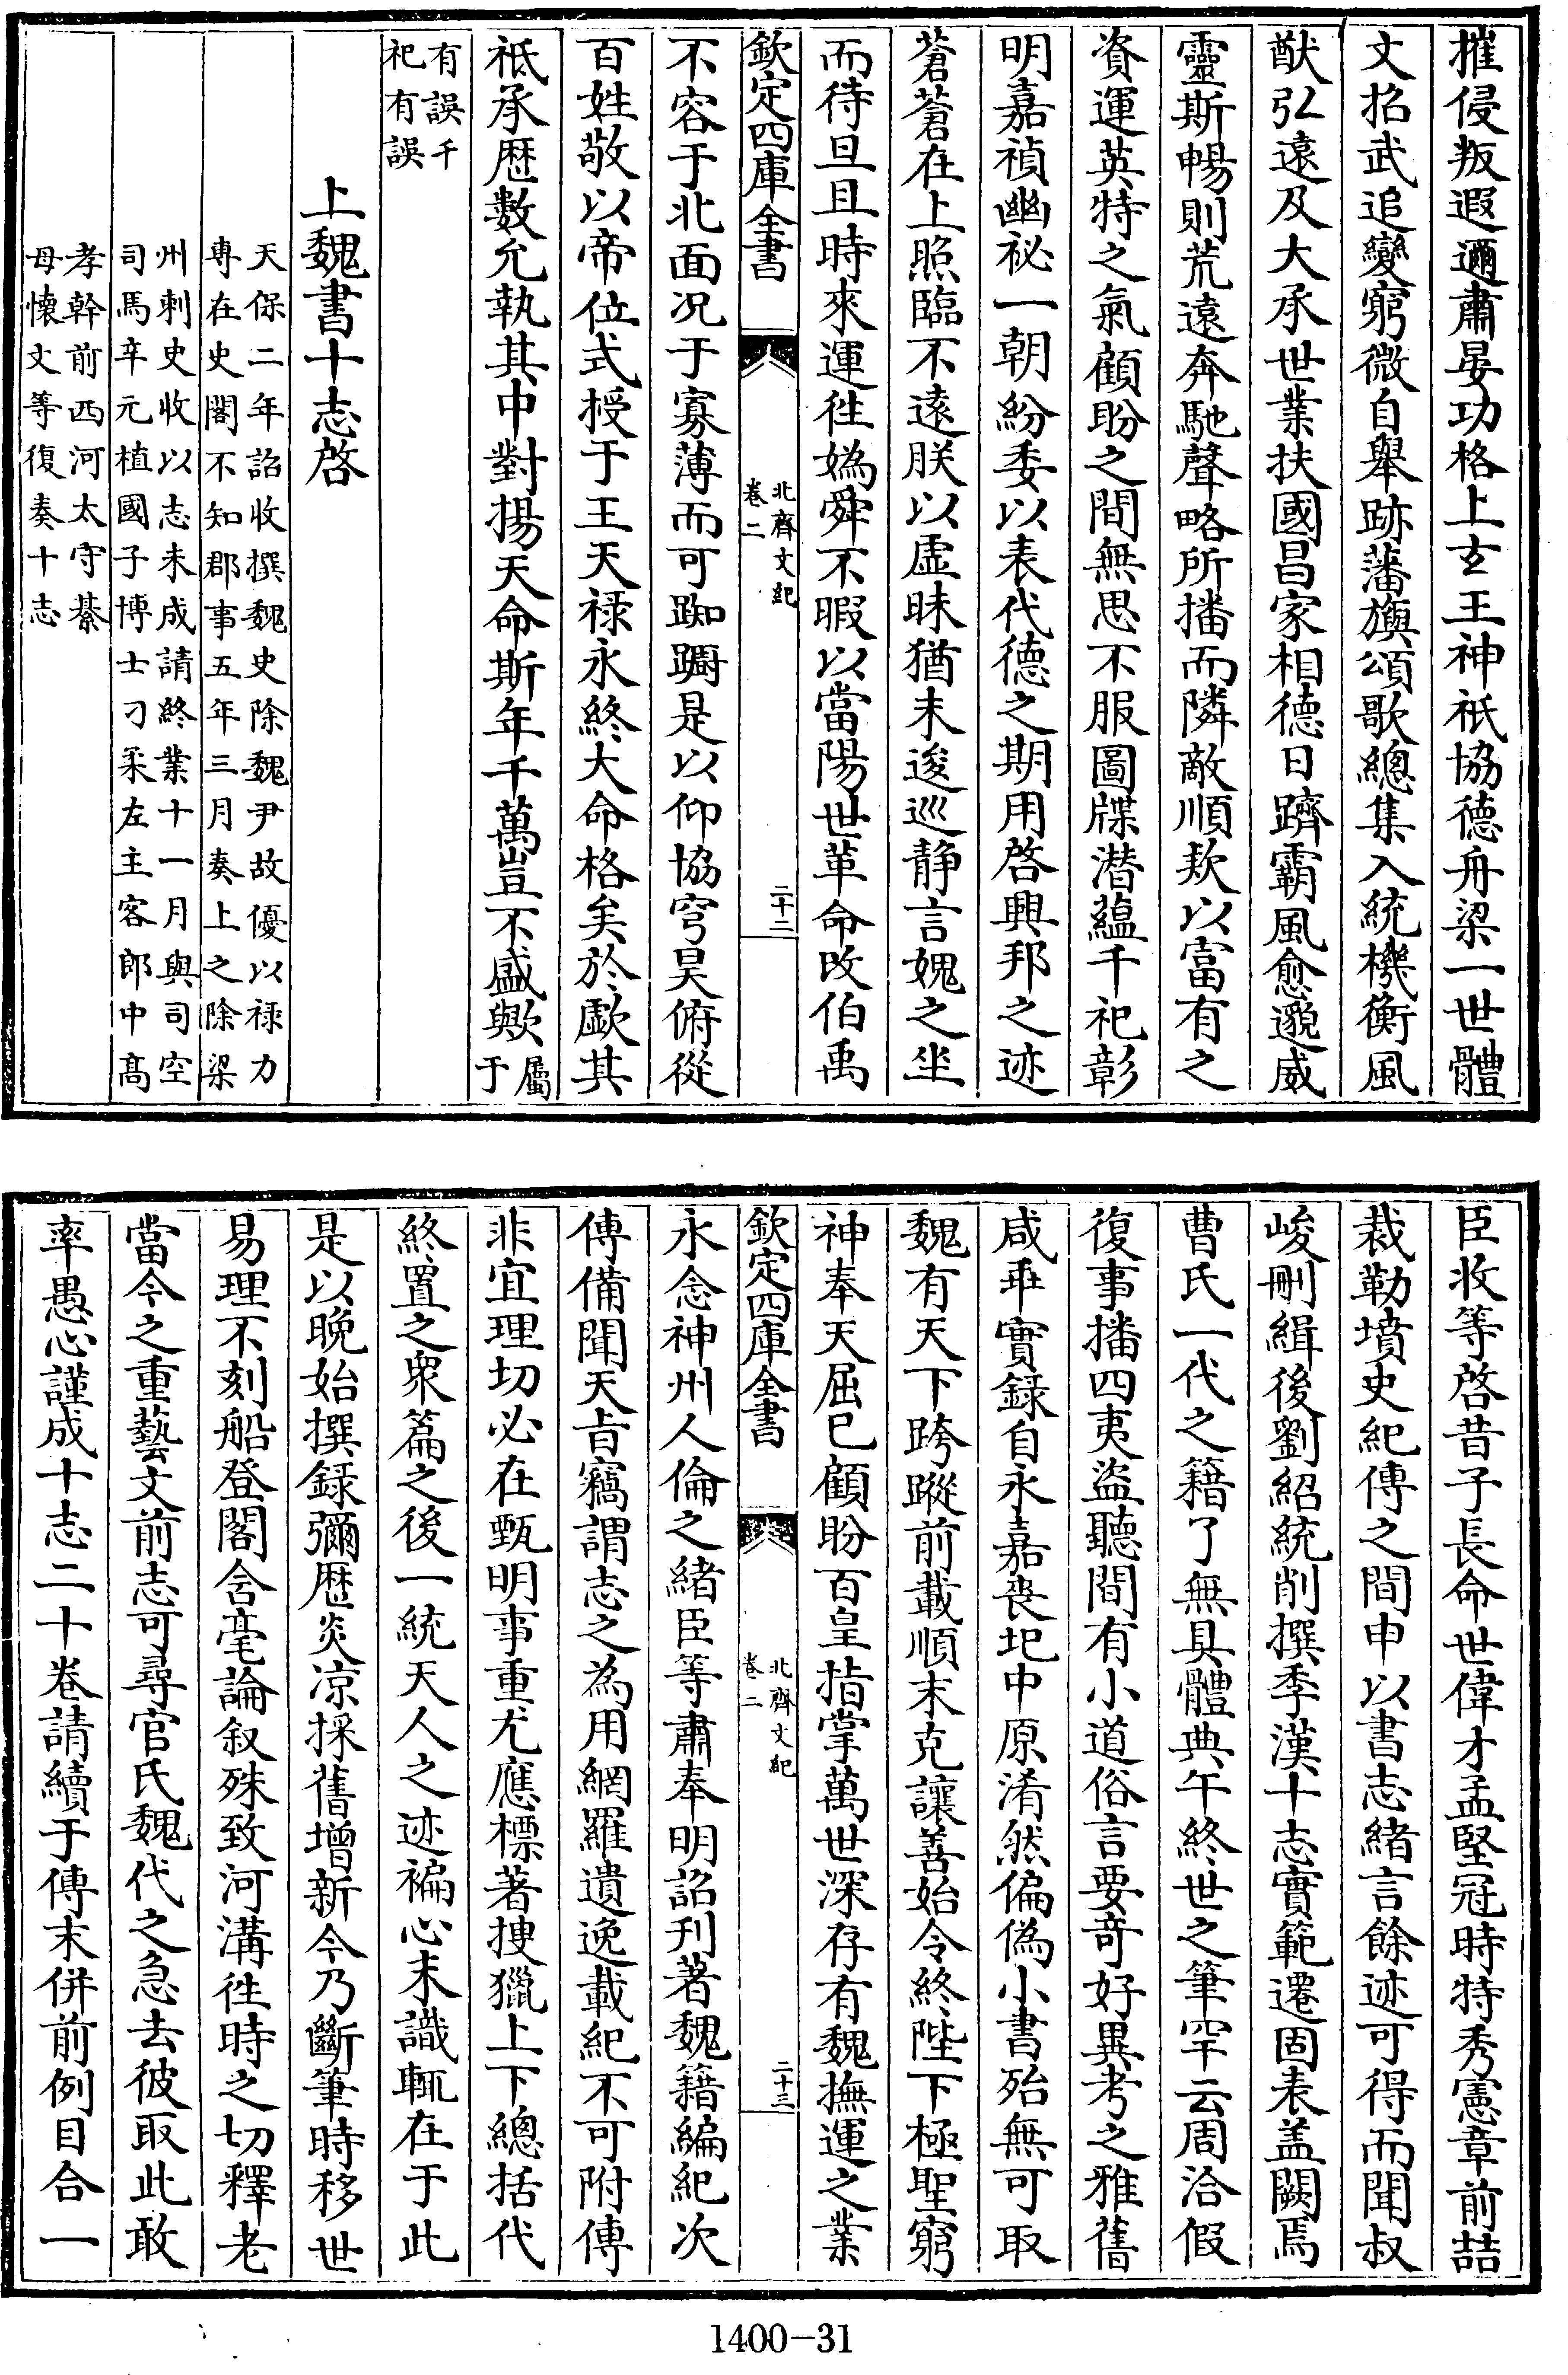 摧侵叛遐邇肅晏功格上玄王神祇協德舟梁一世體
文招武追變窮微自舉跡藩旟頌歌總集入統機衡風
猷弘遠及大承世業扶國昌家相德日躋霸風愈邈威
靈斯暢則荒遠奔馳聲略所播而隣敵順欵以富有之
資運英特之氣顧盼之間無思不服圖牒潜蘊千祀彰
明嘉禎幽祕一朝紛委以表代德之期用啓興邦之迹
蒼蒼在上照臨不遠朕以虛昧猶未逡巡静言媿之坐
而待旦且時來運徃媯舜不暇以當陽世革命改伯禹
欽定四庫全書
北齊文紀
卷二
二十二
不容于北面况于寡薄而可踟躕是以仰協穹昊俯從
百姓敬以帝位式授于王天禄永終大命格矣於歔其
祗承歴數允執其中對揚天命斯年千萬豈不盛歟屬于
有誤千
祀有誤
上魏書十志啓
天保二年詔收撰魏史除魏尹故優以禄力
専在史閣不知郡事五年三月奏上之除梁
州刺史收以志未成請終業十一月與司空
司馬辛元植國子博士刁柔左主客郎中髙
孝幹前西河太守綦
母懷文等復奏十志
臣收等啓昔子長命世偉才孟堅冠時特秀憲章前喆
裁勒墳史紀傳之間申以書志緒言餘迹可得而聞叔
峻刪緝後劉紹統削撰季漢十志實範遷固表盖闕焉
曹氏一代之籍了無具體典午終世之筆罕云周洽假
復事播四夷盜聽間有小道俗言要竒好異考之雅舊
咸乖實録自永嘉喪圯中原淆然偏偽小書殆無可取
魏有天下跨蹤前載順末克讓善始令終陛下極聖窮
神奉天屈已顧盼百皇指掌萬世深存有魏撫運之業
欽定四庫全書
北齊文紀
卷二
二十三
永念神州人倫之緒臣等肅奉明詔刊著魏籍編紀次
傳備聞天㫖竊謂志之為用網羅遺逸載紀不可附傳
非宜理切必在甄明事重尤應標著捜獵上下總括代
終置之衆篇之後一統天人之迹褊心末識輒在于此
是以晚始撰録彌歴炎凉採舊增新今乃斷筆時移世
易理不刻船登閣含毫論叙殊致河溝徃時之切釋老
當今之重藝文前志可尋官氏魏代之急去彼取此敢
率愚心謹成十志二十卷請續于傳末併前例目合一
1400-31